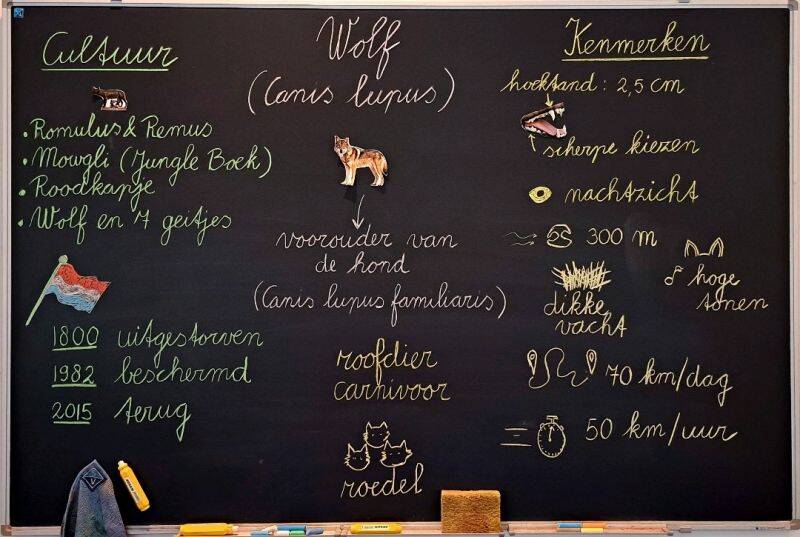 Cultuur
• Romulus & Remus
• Mowgli (Jungle Boek)
• Roodkapje
• Wolf en 7 geitjes
1800 uitgestorven
1982 beschermd
2015 terug
Wolf
(Canis lupus)
voorouder van
de hond
(Canis lupus familiaris)
roofdier
carnivoor
roedel
Kenmerken
hoektand : 2,5 cm
scherpe kiezen
nachtzicht
300 m
hoge
tonen
dikke
vacht
70 km/dag
50 km/uur